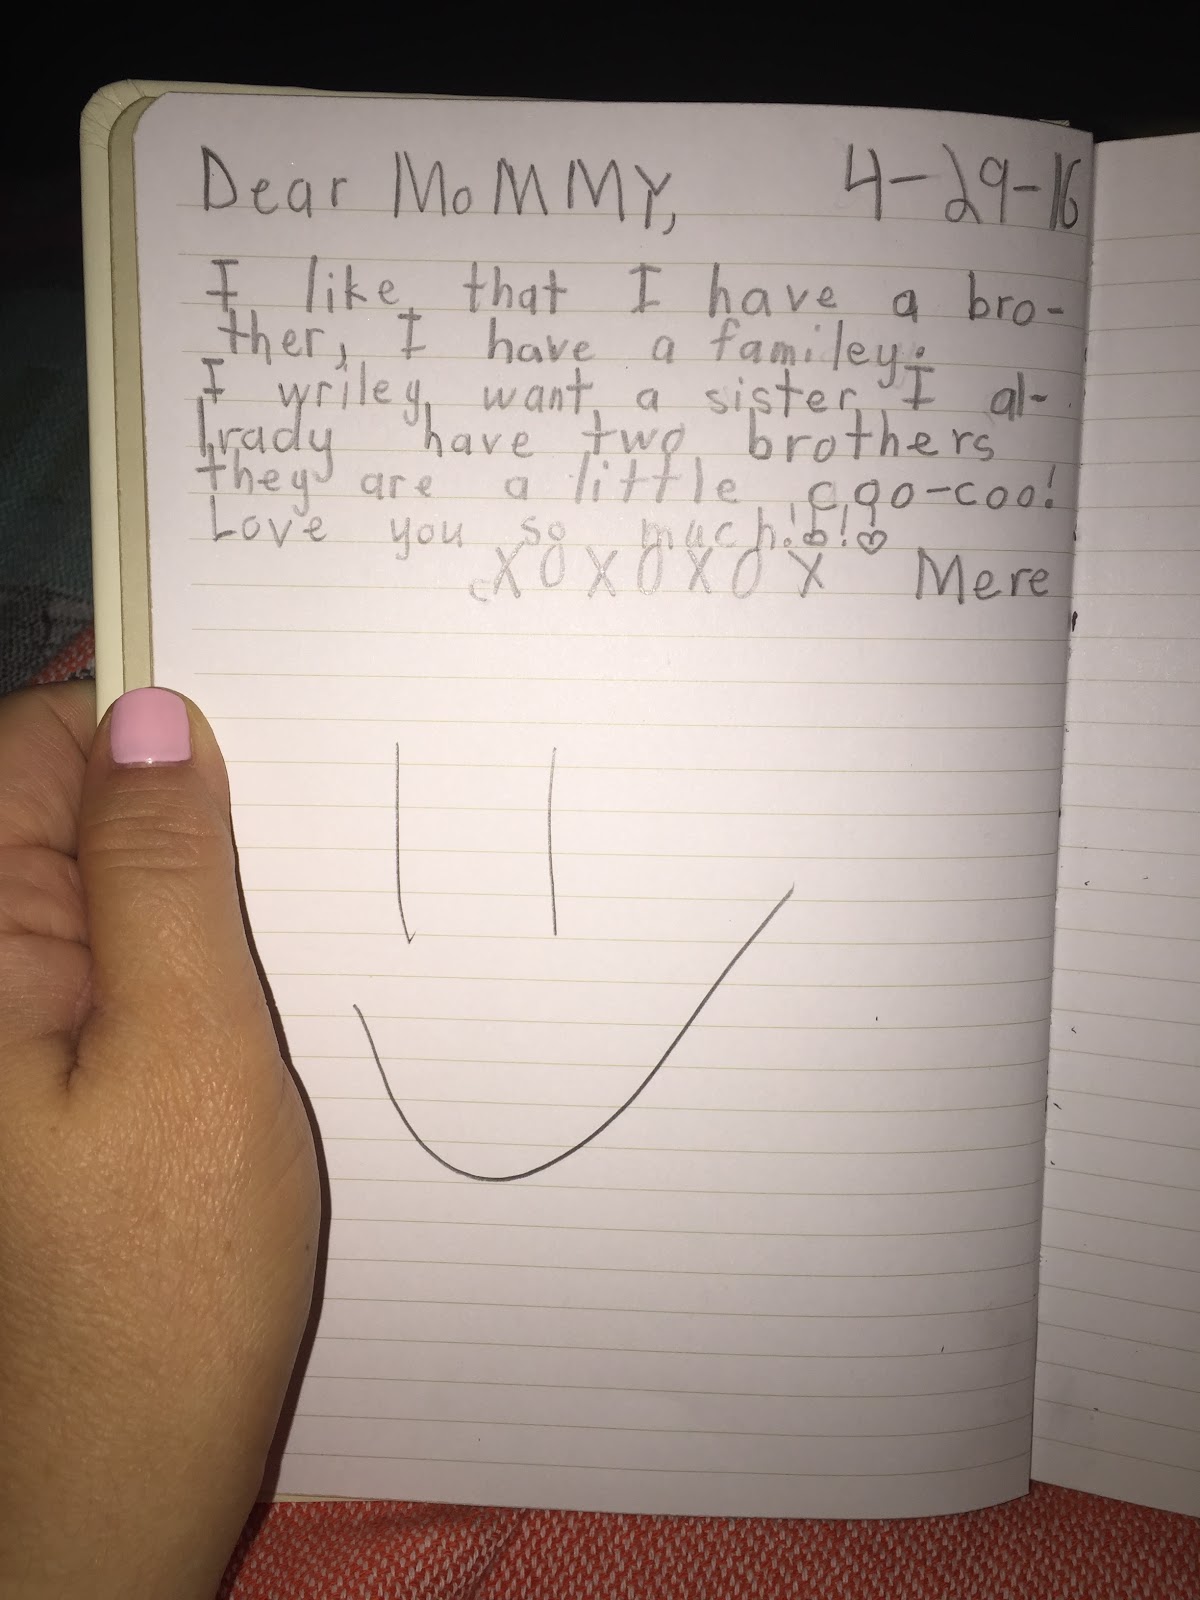 Dear MoMMY, 4-29-16
I like that I have a bro-
ther, I have a familey.
I wriley want a sister I al-
lrady have two brothers
they are a little cqo-coo!
Love you so much!♡!♡
XOXOXOX Mere